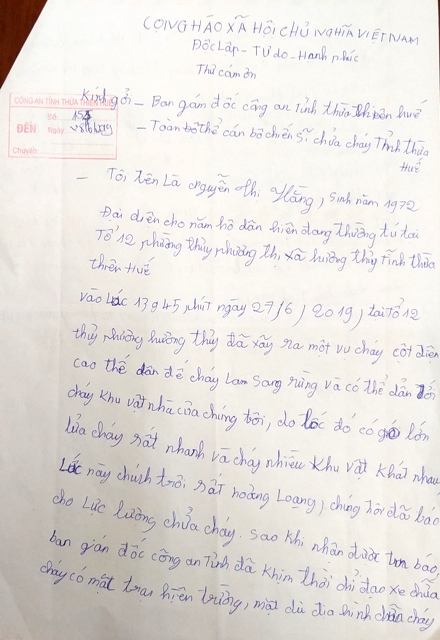 CỌNG HÁO XÃ HỘI CHỦ NGHĨA VIỆT NAM
Đốc Lập - Tự do - Hanh phúc
Thư cảm ơn
CÔNG AN TỈNH THỪA THIÊN HUẾ
ĐẾN
Số
Ngày
Chuyển:
Kính gởi - Ban gám đốc công an Tỉnh thừa thiên huế
- Toàn bộ thể cán bộ chiến sĩ chửa cháy Tỉnh thừa
Huế
- Tôi tên Là nguyễn thị Hằng, Sinh năm 1972
Đại diên cho năm hô dân hiên đang thường tú tai
Tổ 12 phường thủy phương thị xã hương thủy Tĩnh thừa
thiên Huế
vào Lúc 13g 45 phút ngày 27/6/2019, tai Tổ 12
thủy phương hương thủy đã xãy ra một vu cháy cột điên
cao thế dẫn đế cháy Lam Sang rừng và có thể dẫn tới
cháy Khu vật nhà của chúng tôi, do lốc đó có gió lớn
lửa cháy rất nhanh và cháy nhiều Khu vật Khát nhau
Lúc này chính tôi rất hoảng Loang, chúng tôi đã báo
cho Lực lường chửa cháy. Sao khi nhân được tin báo
ban gián đốc công an Tỉnh đã Khịm thời chỉ đạo xe chửa
cháy có mặt trai hiện trường, mặt dù đia hình cháy